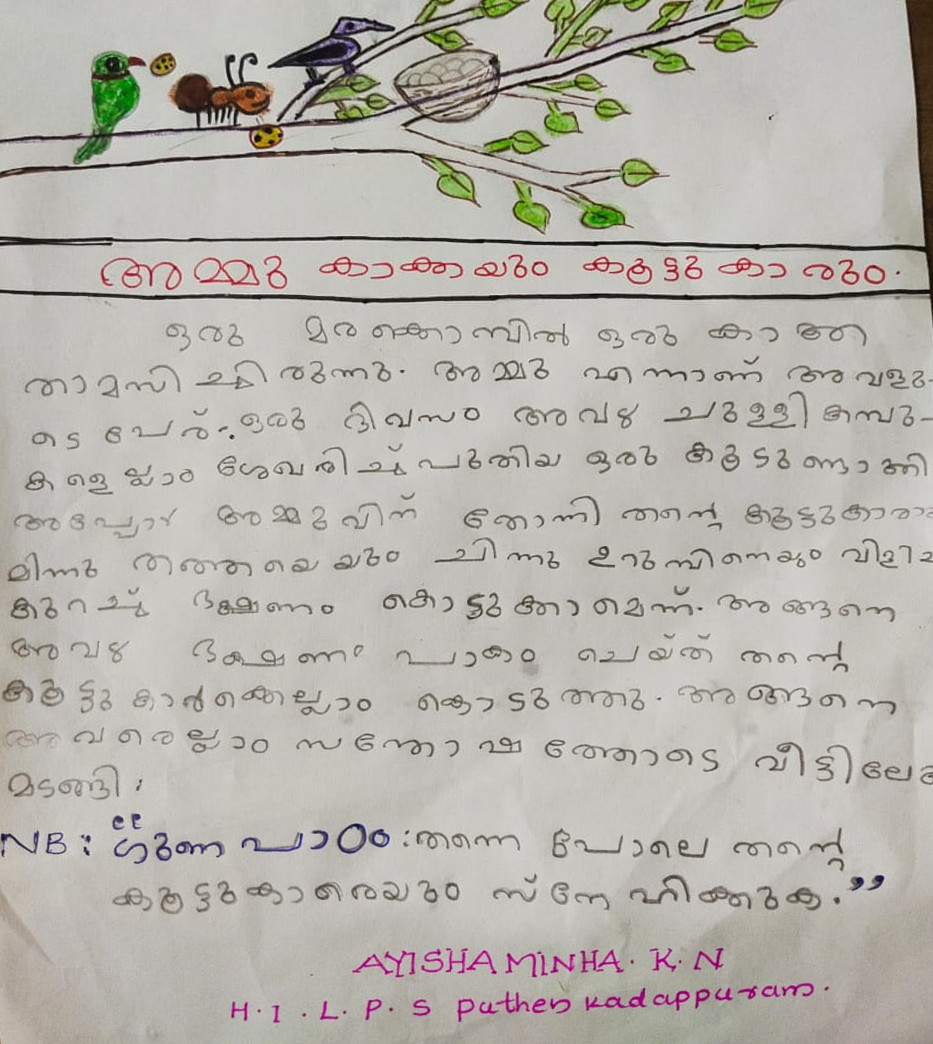 അമ്മു കാക്കയും കൂട്ടുകാരും.
ഒരു മരക്കൊമ്പിൽ ഒരു കാക്ക
താമസിച്ചിരുന്നു. അമ്മു എന്നാണ് അവളു-
ടെ പേര്. ഒരു ദിവസം അവൾ ചുള്ളികമ്പു-
കളെല്ലാം ശേഖരിച്ച് പുതിയ ഒരു കൂടുണ്ടാക്കി
അപ്പോൾ അമ്മുവിന് തോന്നി തന്റെ
മിന്നു തത്തയെയും ചിന്നു ഉറുമ്പിനെയും
കുറച്ച് ഭക്ഷണം കൊടുക്കാമെന്ന്. അങ്ങനെ
അവൾ ഭക്ഷണം പാകം ചെയ്ത് തന്റെ
കൂട്ടുകാർക്കെല്ലാം കൊടുത്തു. അങ്ങനെ
അവരെല്ലാം സന്തോഷത്തോടെ
മടങ്ങി.
NB: "ഗുണപാഠം: തന്നെ പോലെ തന്റെ
കൂട്ടുകാരെയും സ്നേഹിക്കുക."
AYISHA MINHA. K. N
H. I. L. P. S Puthen kadappuram.